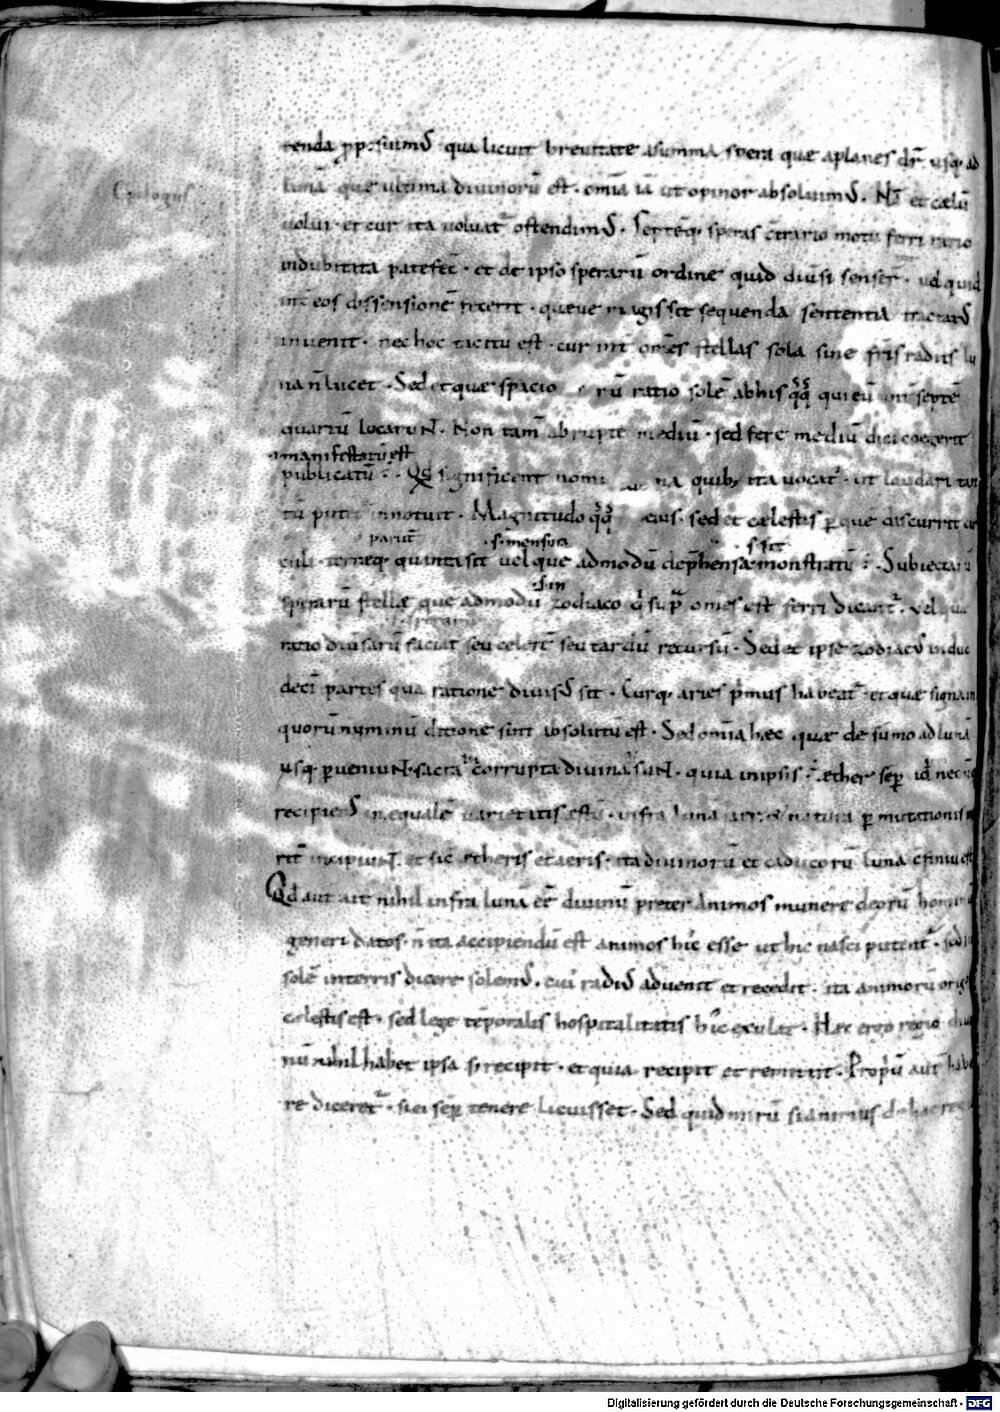 renda ꝓp̄ suimꝰ qua licuit breuitate asumma spera quae aplanes dr̄ usq; ad
Epilogus
lunā quae ultima diuinorū est · om̄ia iā ut opinor absoluimꝰ · Nā et cęlū
uolui · et cur ita uoluat᷑ ostendimꝰ · Septēq; speras cōtrario motu ferri ratio
indubitata patefec̄ · et de ipso sperarū ordine quid diūsi senser̄ · uel quid
int̄ eos dissensionē fecerit · queue magis sit sequenda sententia tractatꝰ
inuenit · nec hoc tacitū est · cur int̄ om̄es stellas sola sine fr̄is radiis lu
na n̄ lucet · Sed et quae spacio rū ratio solē abhis qq̄ qui eū int̄ septē
quariū locaruNt · Non tam̄ abrupte mediū · sed fere mediū dici coegerit
manifestatū est
publicatū · Qd̄ significent nomi na quib; ita uocat᷑ · ut laudari tan
tū putet᷑ innotuit · Magnitudo qq̄ eius · sed et cęlestis ꝑ que discurrit cir
paruit · s · mensura · s · sit
culi · terręq; quanta sit uel que admodū dephensa monstratū · Subiectarū
· s · in
sperarū stellę que admodū zodiaco q̄ sup̄ om̄es est ferri dicant᷑ · uel quę
· sperarū
ratio diūsarū faciat seu celerē seu tardū recursū · Sed et ipse zodiacꝰ induo
deci partes qua ratione diuisꝰ sit · Curq; aries p̄mus habeat᷑ · et quae signa in
quorū numinū ditione sint absolutū est · Sed om̄ia haec quae de sūmo ad lunā
usq; ꝑueniuNt · sacra incorrupta diuina suNt · quia inipsis ē aether sēp idē nec ūq
recipiens inęqualē uarietatis ęstū · infra luna aer et natura ꝑmutationis
rit᷑ incipiuNt · et sic ętheris et aeris · ita diuinorū et caducorū luna cōfiniū est
Qd aut ait nihil infra lunā eē diuinū preter animos munere deorū hominū
generi datos · n̄ ita accipiendū est animos hic esse ut hic nasci putent᷑ · sed
solē interris dicere solemꝰ · cui radiꝰ aduenit et recedit · ita animorū origo
cęlestis est · sed lege tēporalis hospitalitatis hic exulat · Hęc ergo regio diui
nū nihil habet ipsa s; recipit · et quia recipit et remittit · Propriū aut habe
re diceret᷑ · si ei sēp tenere licuisset · Sed quid mirū si animus de hac regi